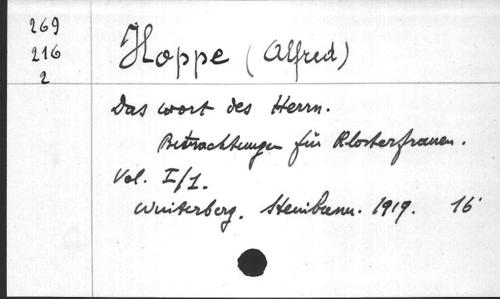 269
216
2
Hoppe (Alfred)
Das wort des Herrn.
Betrachtungen für Klosterfrauen.
Vol. I/1.
Winterberg. Steinbrenn. 1919. 16°